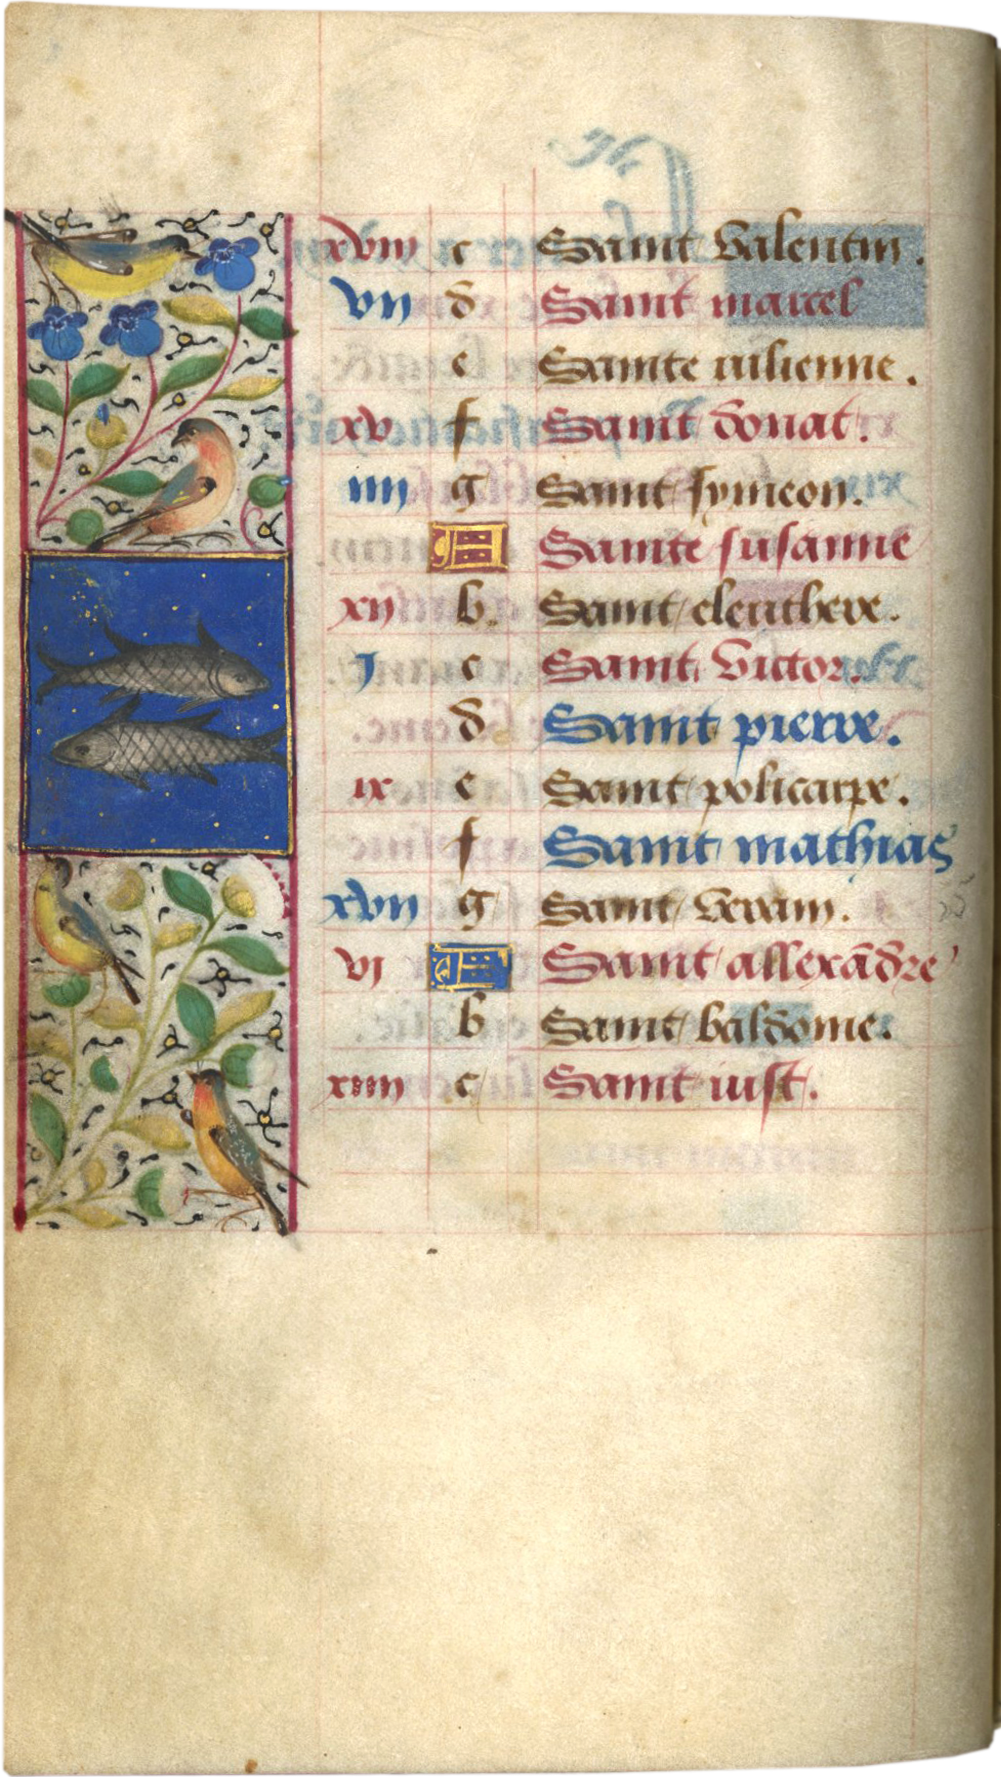 xviii c Saint valentin.
vii d Saint marcel
e Sainte iulienne.
xv f Saint donat.
iiii g Saint symeon.
A Sainte susanne
xii b Saint eleuthere.
j c Saint victor.
d Saint pierre.
ix e Saint policarpe.
f Saint mathias
xvii g Saint verain.
vi A Saint allexãdre
b Saint baldome.
xiiii c Saint iust.